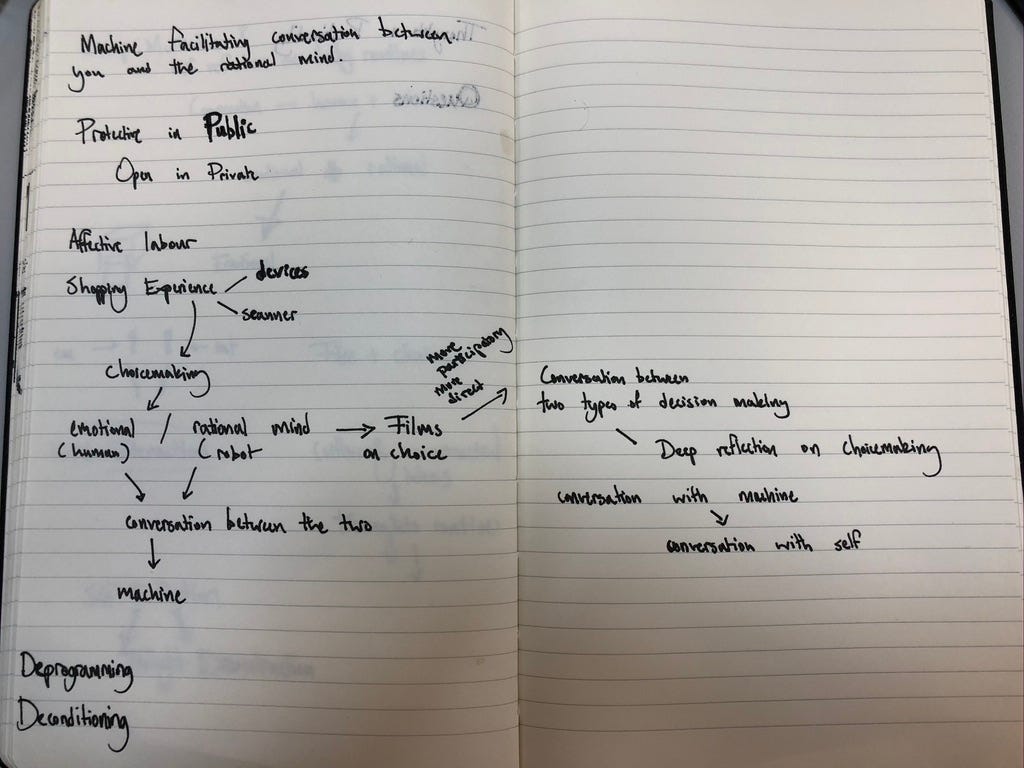 Machine facilitating conversation between
you and the rational mind.
Protective in Public
Open in Private
Affective labour
Shopping Experience
devices
scanner
Choicemaking
emotional / rational mind → Films
(human) (robot on choice
more
participatory
more
direct
conversation between the two
machine
Deprogramming
Deconditioning
Conversation between
two types of decision making
Deep reflection on choicemaking
conversation with machine
conversation with self
Questions